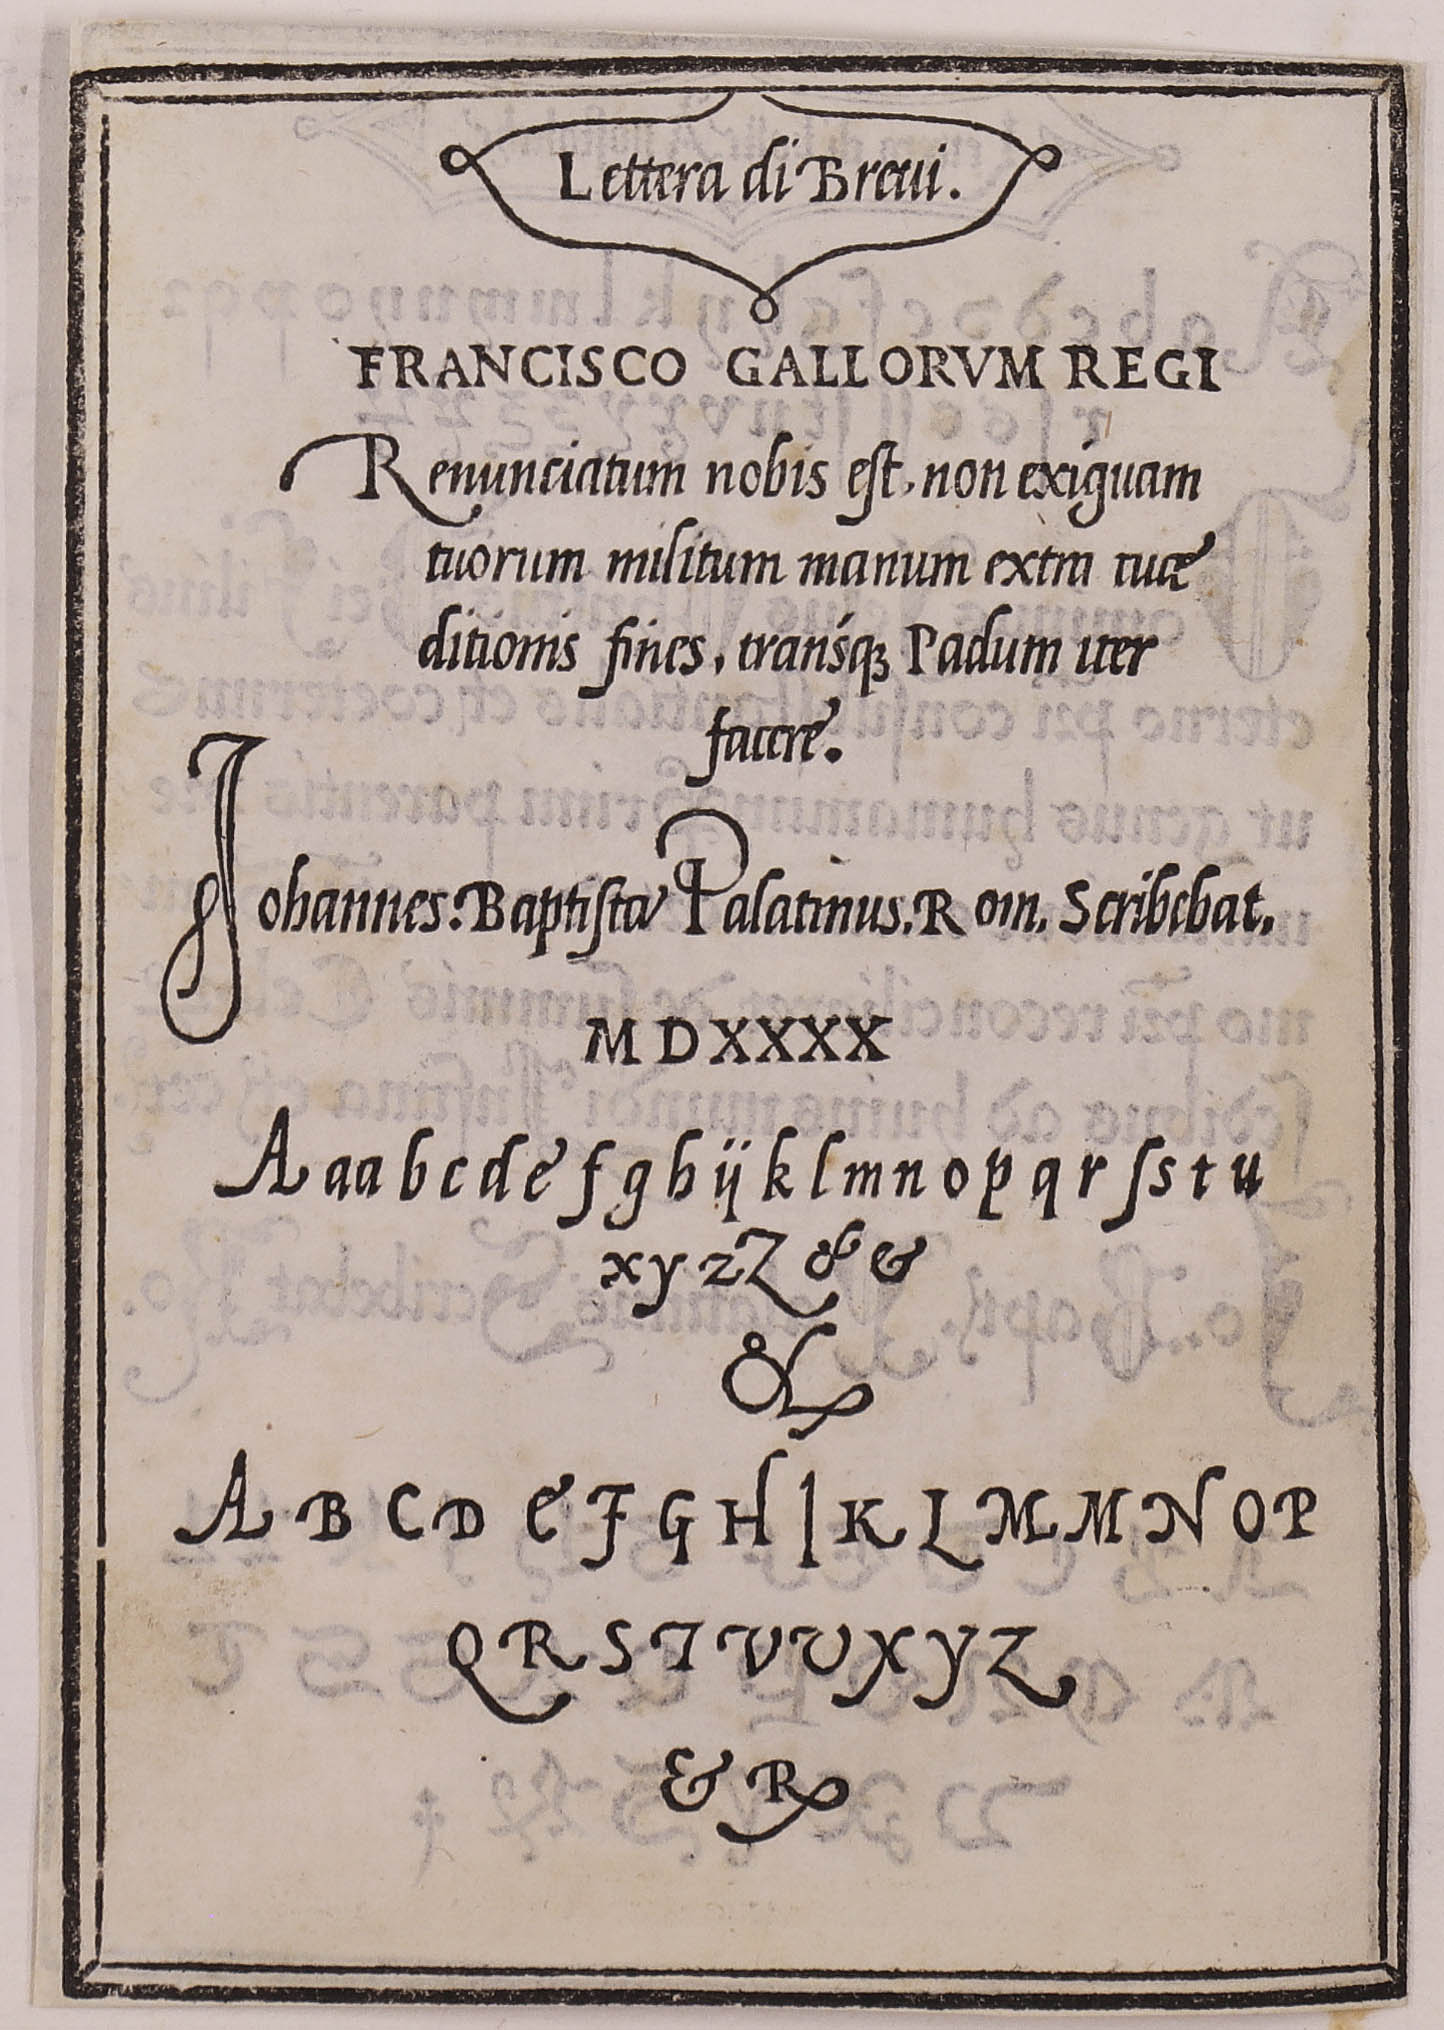 Lettera di Breui.
FRANCISCO GALLORVM REGI
Renunciatum nobis est, non exiguam
tuorum militum manum extra tuae
ditionis fines, transq; Padum iter
facere.
Johannes: Baptista Palatinus. Rom. Scribebat.
MDXXXX
A a a b c d e f g h ij k l m n o p q r ſ s t u
x y z Z & &
&
A B C D E F G H I K L M M N O P
Q R S T V U X Y Z
& R